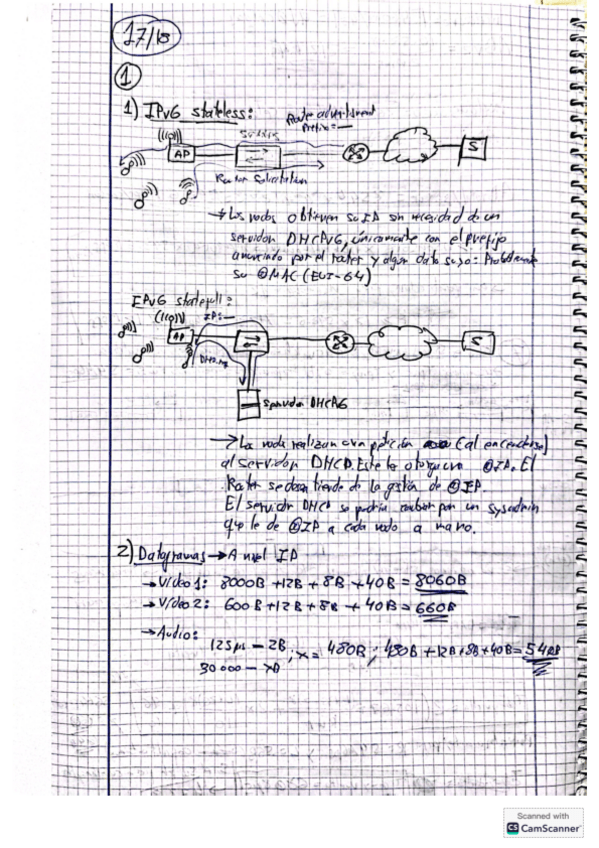 17/18
1
1) IPv6 stateless:
Router advertisement
Prefix = —
((ıoı)) Switch
AP
S
Router Solicitation
→ Los nodos obtienen su IP sin necesidad de un
servidor DHCPv6, únicamente con el prefijo
anunciado por el router y algun dato suyo: Probablemente
su @MAC (EUI-64)
IPv6 statefull:
IP: —
AP
S
Servidor DHCPv6
→ Los nodos realizan una petición (al encenderse)
al servidor DHCP. Este le otorga una @IP. El
Router se desentiende de la gestión de @IP.
El servidor DHCP se podría cambiar por un sysadmin
que le de @IP a cada nodo a mano.
2) Datagramas → A nivel IP
→ Vídeo 1: 8000B + 12B + 8B + 40B = 8060B
→ Vídeo 2: 600B + 12B + 8B + 40B = 660B
→ Audio:
125µs — 2B ; x = 480B ; 480B + 12B + 8B + 40B = 540B
30 000 — xB
Scanned with
CS CamScanner